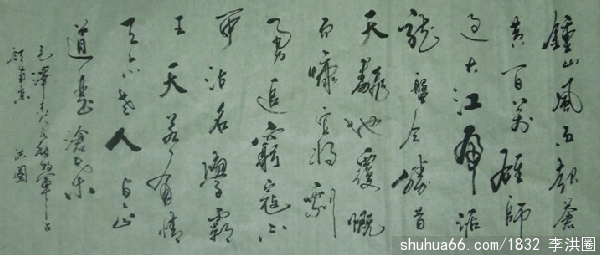 鍾山風雨起蒼
黄百萬雄師
过大江虎踞
龍盤今勝昔
天翻地覆慨
而慷宜将剩
勇追窮寇不
可沽名學霸
王天若有情
天亦老人间正
道是滄桑
毛澤東人民解放軍占
领南京 洪圈
shuhua66.com/1832 李洪圈